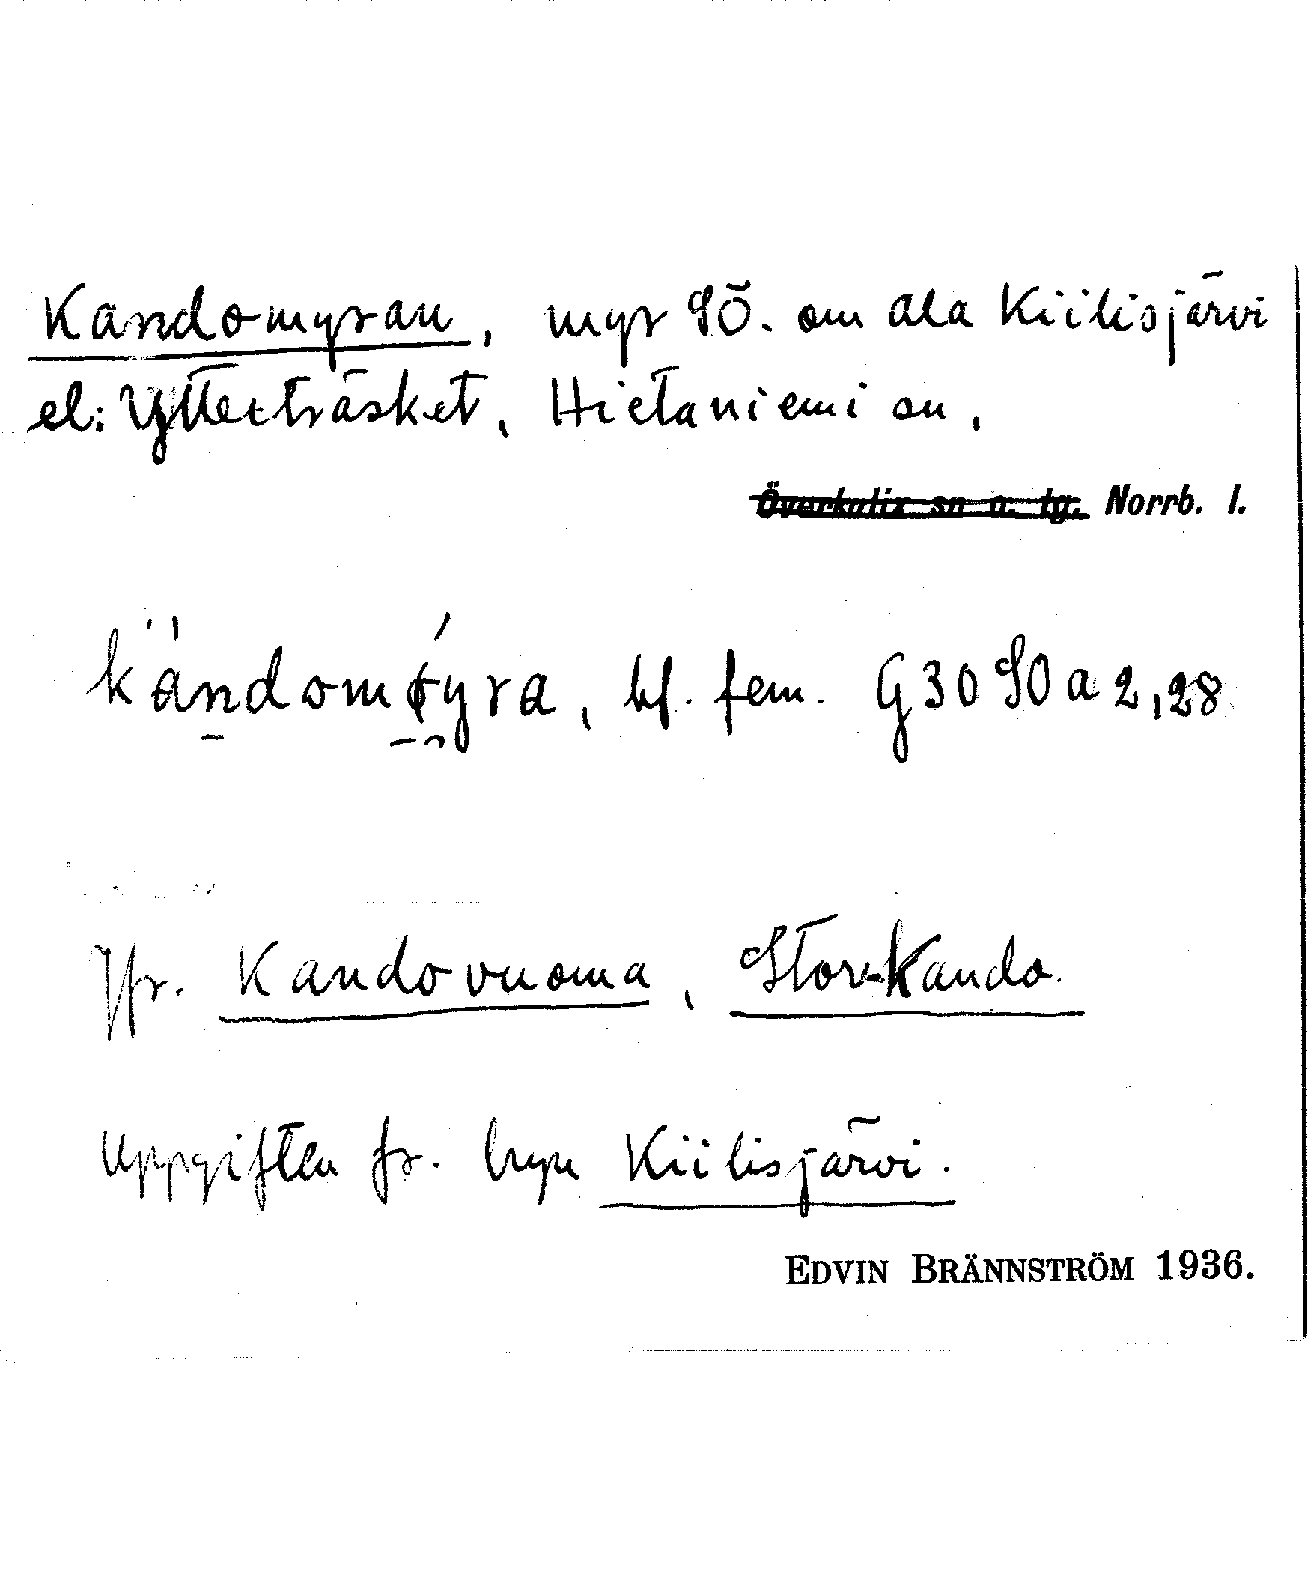 Kandomyran, myr SÖ. om Ala Kiilisjärvi
el: Ytterträsket, Hietaniemi sn,
Överkalix sn o. tg. Norrb. l.
kandomøyra, bf. fem. G30 SO a 2,28
Jfr. Kandovuoma, Stor-Kando.
Uppgiften fr. byn Kiilisjärvi.
EDVIN BRÄNNSTRÖM 1936.